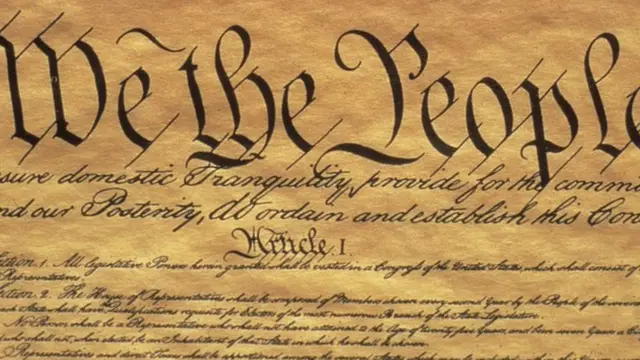 We the People
sure domestic Tranquility, provide for the comm
nd our Posterity, do ordain and establish this Con
Article. I.
ection. 1. All legislative Powers herein granted shall be vested in a Congress of the United States, which shall consist of
Representatives.
ection. 2. The House of Representatives shall be composed of Members chosen every second Year by the People of the
ach State shall have the Qualifications requisite for Electors of the most numerous Branch of the State Legislature.
No Person shall be a Representative who shall not have attained to the Age of twenty five Years, and been seven Years a
who shall not, when elected, be an Inhabitant of that State in which he shall be chosen.
Representatives and direct Taxes shall be apportioned among the several States